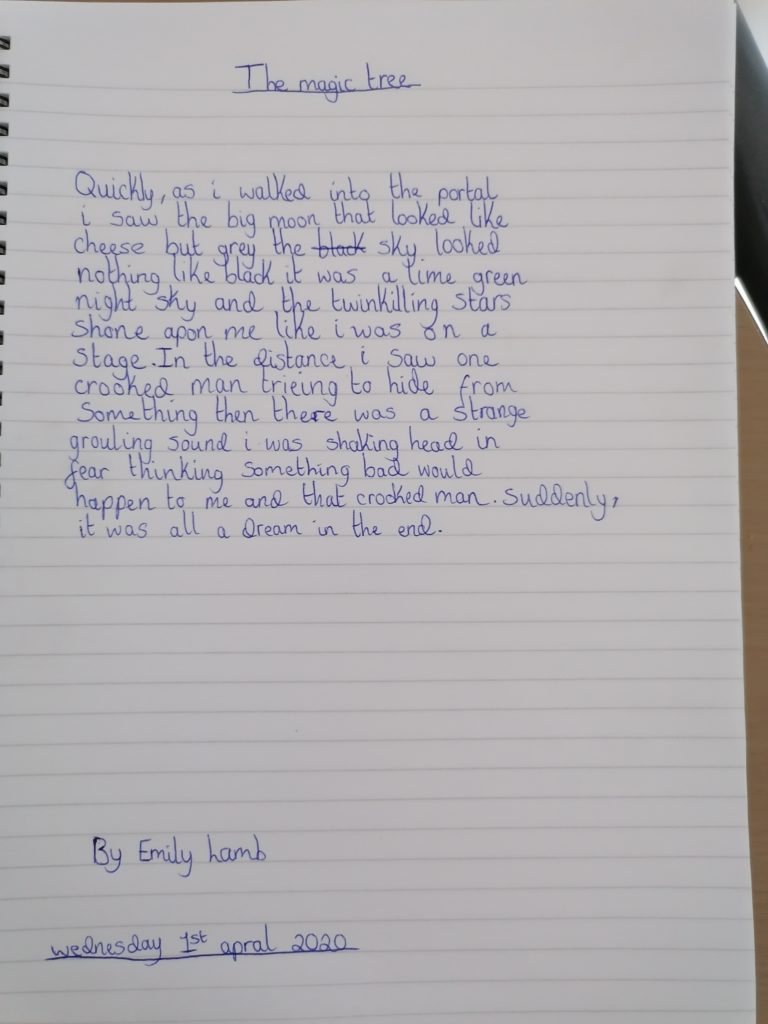 The magic tree
Quickly, as i walked into the portal
i saw the big moon that looked like
cheese but grey the black sky looked
nothing like black it was a lime green
night sky and the twinkilling stars
shone apon me like i was on a
stage. In the distance i saw one
crooked man trieing to hide from
something then there was a strange
grouling sound i was shaking head in
fear thinking something bad would
happen to me and that crooked man. Suddenly,
it was all a dream in the end.
By Emily Lamb
wednesday 1st apral 2020